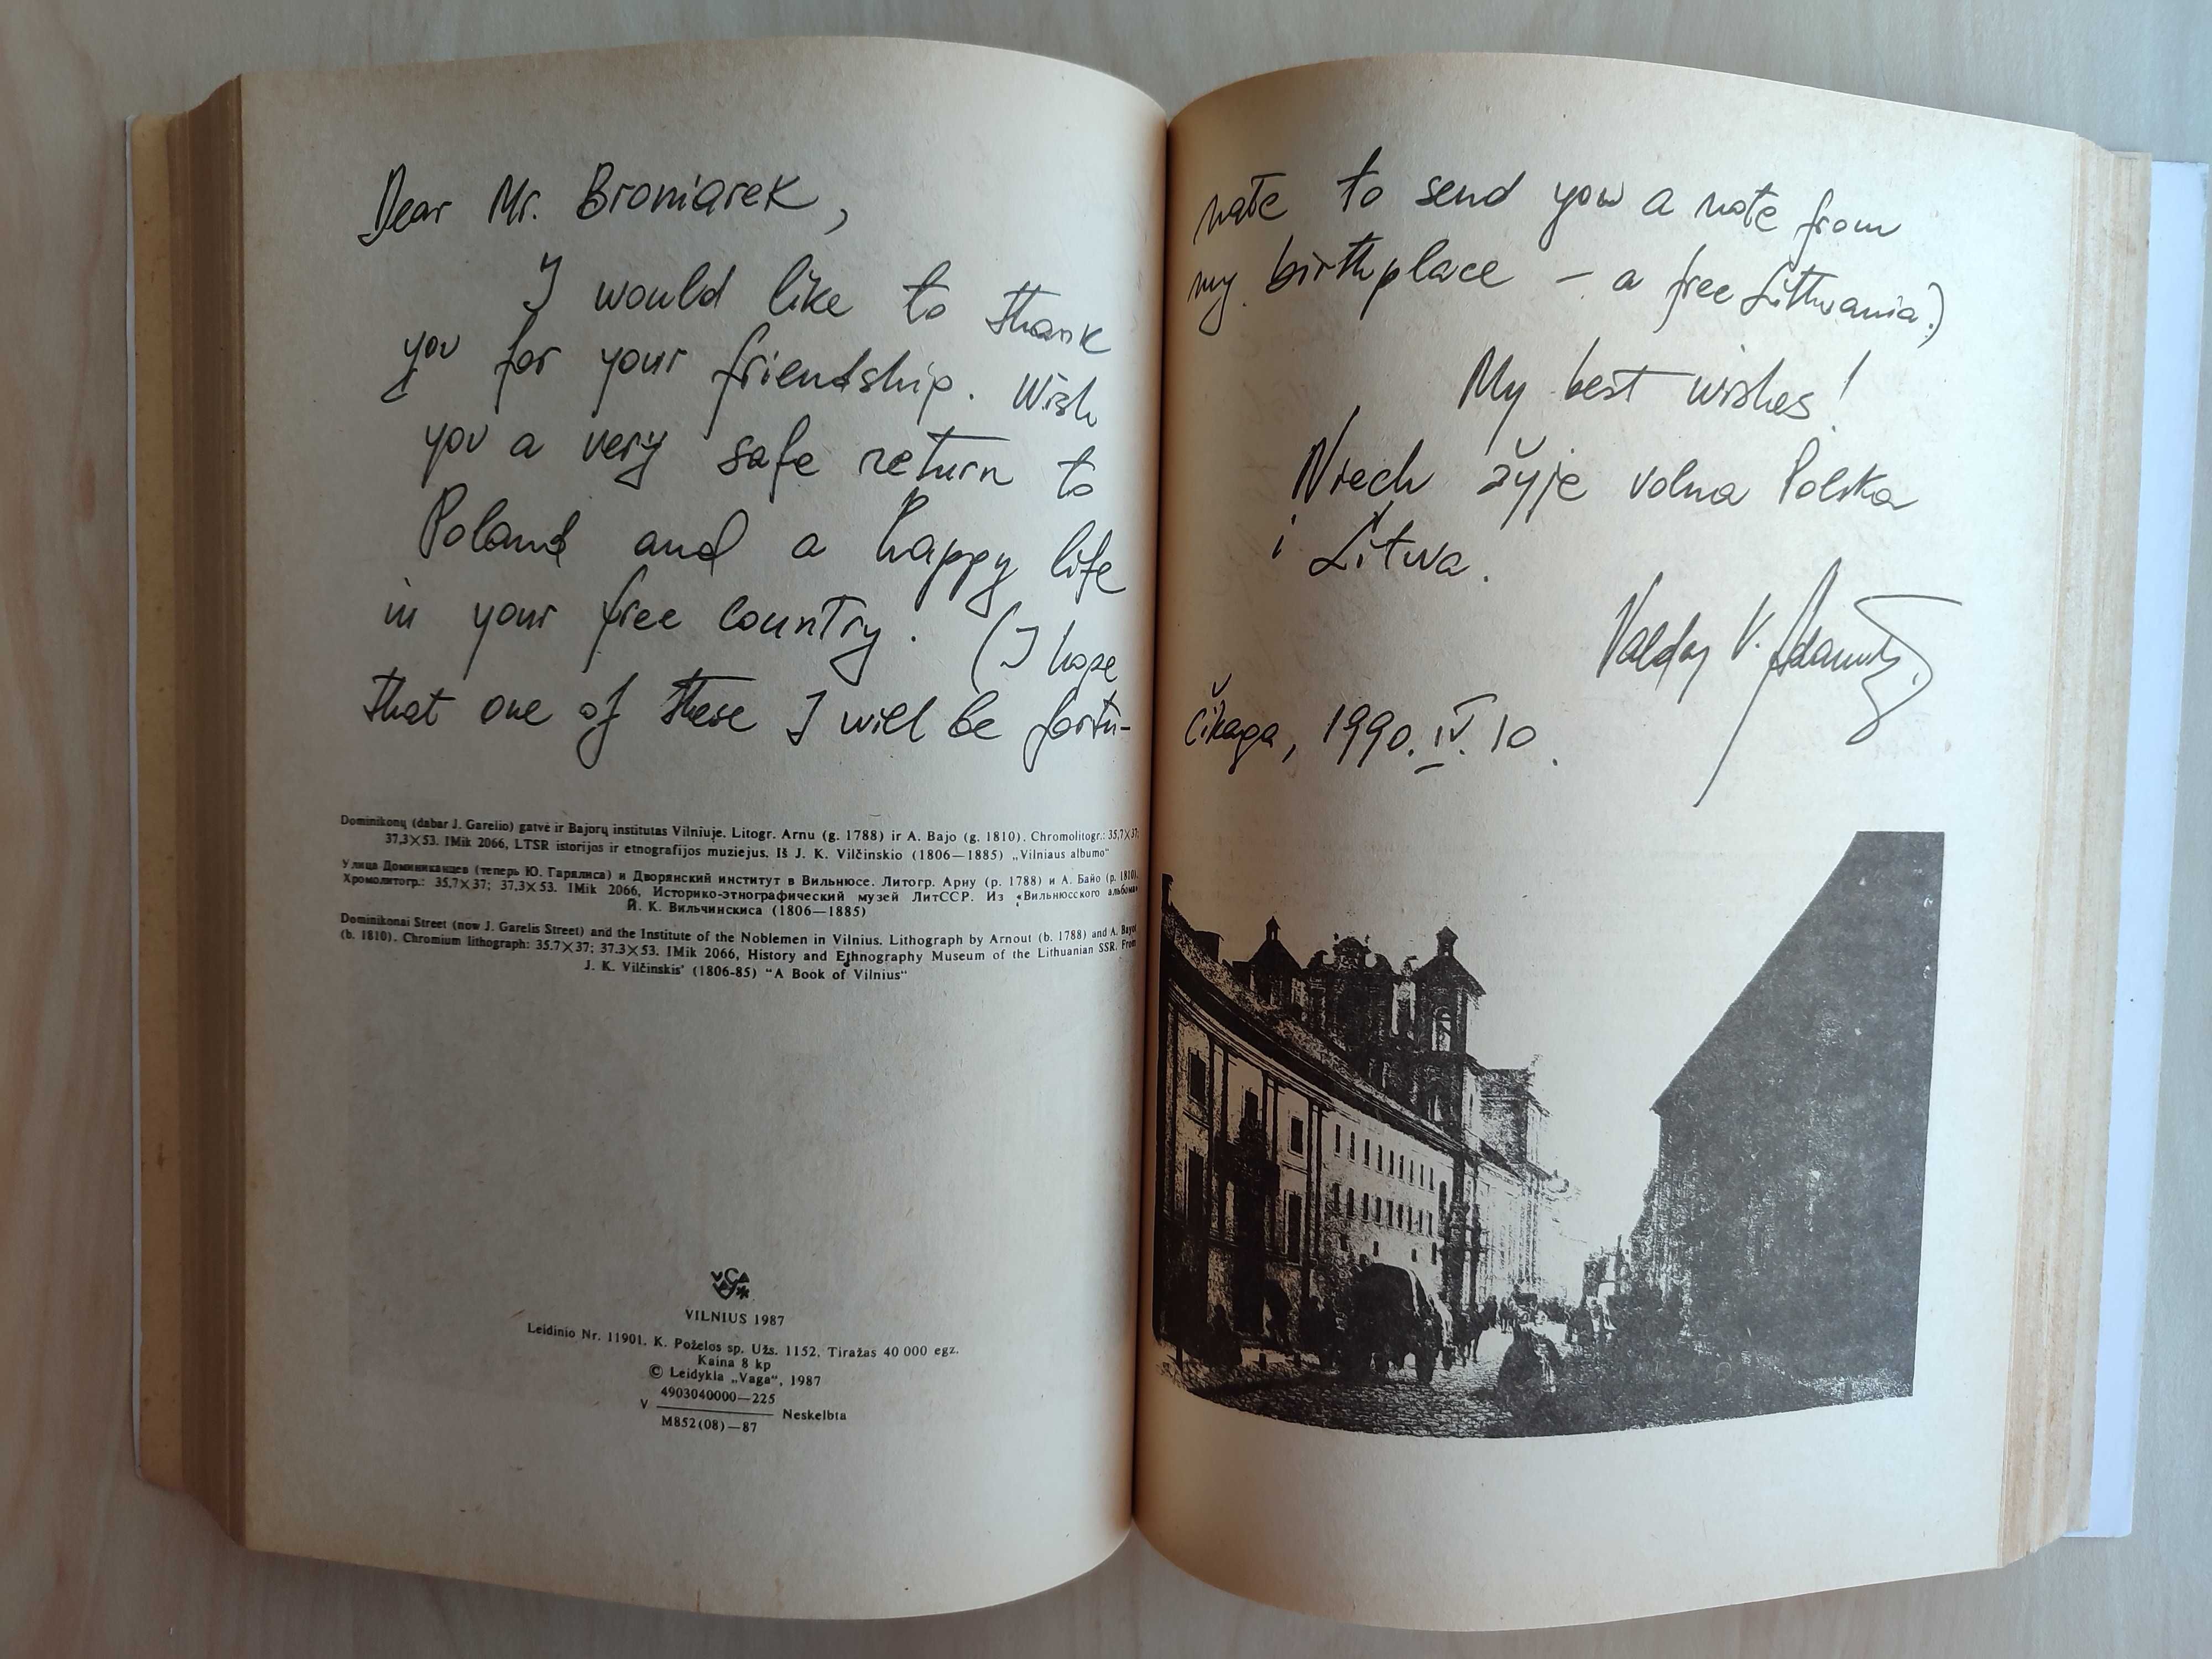 Dear Mr. Broniarek,
I would like to thank
you for your friendship. Wish
you a very safe return to
Poland and a happy life
in your free country. (I hope
that one of these I will be fortu-
Dominikonų (dabar J. Garelio) gatvė ir Bajorų institutas Vilniuje. Litogr. Arnu (g. 1788) ir A. Bajo (g. 1810). Chromolitogr.: 35,7×37;
37,3×53. IMik 2066, LTSR istorijos ir etnografijos muziejus. Iš J. K. Vilčinskio (1806—1885) „Vilniaus albumo“
Улица Доминиканцев (теперь Ю. Гарялиса) и Дворянский институт в Вильнюсе. Литогр. Арну (р. 1788) и А. Байо (р. 1810).
Хромолитогр.: 35,7×37; 37,3×53. IMik 2066, Историко-этнографический музей ЛитССР. Из «Вильнюсского альбома»
Й. К. Вильчинскиса (1806—1885)
Dominikonai Street (now J. Garelis Street) and the Institute of the Noblemen in Vilnius. Lithograph by Arnout (b. 1788) and A. Bayot
(b. 1810). Chromium lithograph: 35.7×37; 37.3×53. IMik 2066, History and Ethnography Museum of the Lithuanian SSR. From
J. K. Vilčinskis' (1806-85) “A Book of Vilnius“
VILNIUS 1987
Leidinio Nr. 11901. K. Poželos sp. Užs. 1152. Tiražas 40 000 egz.
Kaina 8 kp
© Leidykla „Vaga“, 1987
V 4903040000—225
M852(08)—87 Neskelbta
nate to send you a note from
my birthplace – a free Lithuania.)
My best wishes!
Niech žyje volna Polska
i Litwa.
Valdas V. Adamkus
Čikaga, 1990.IV.10.